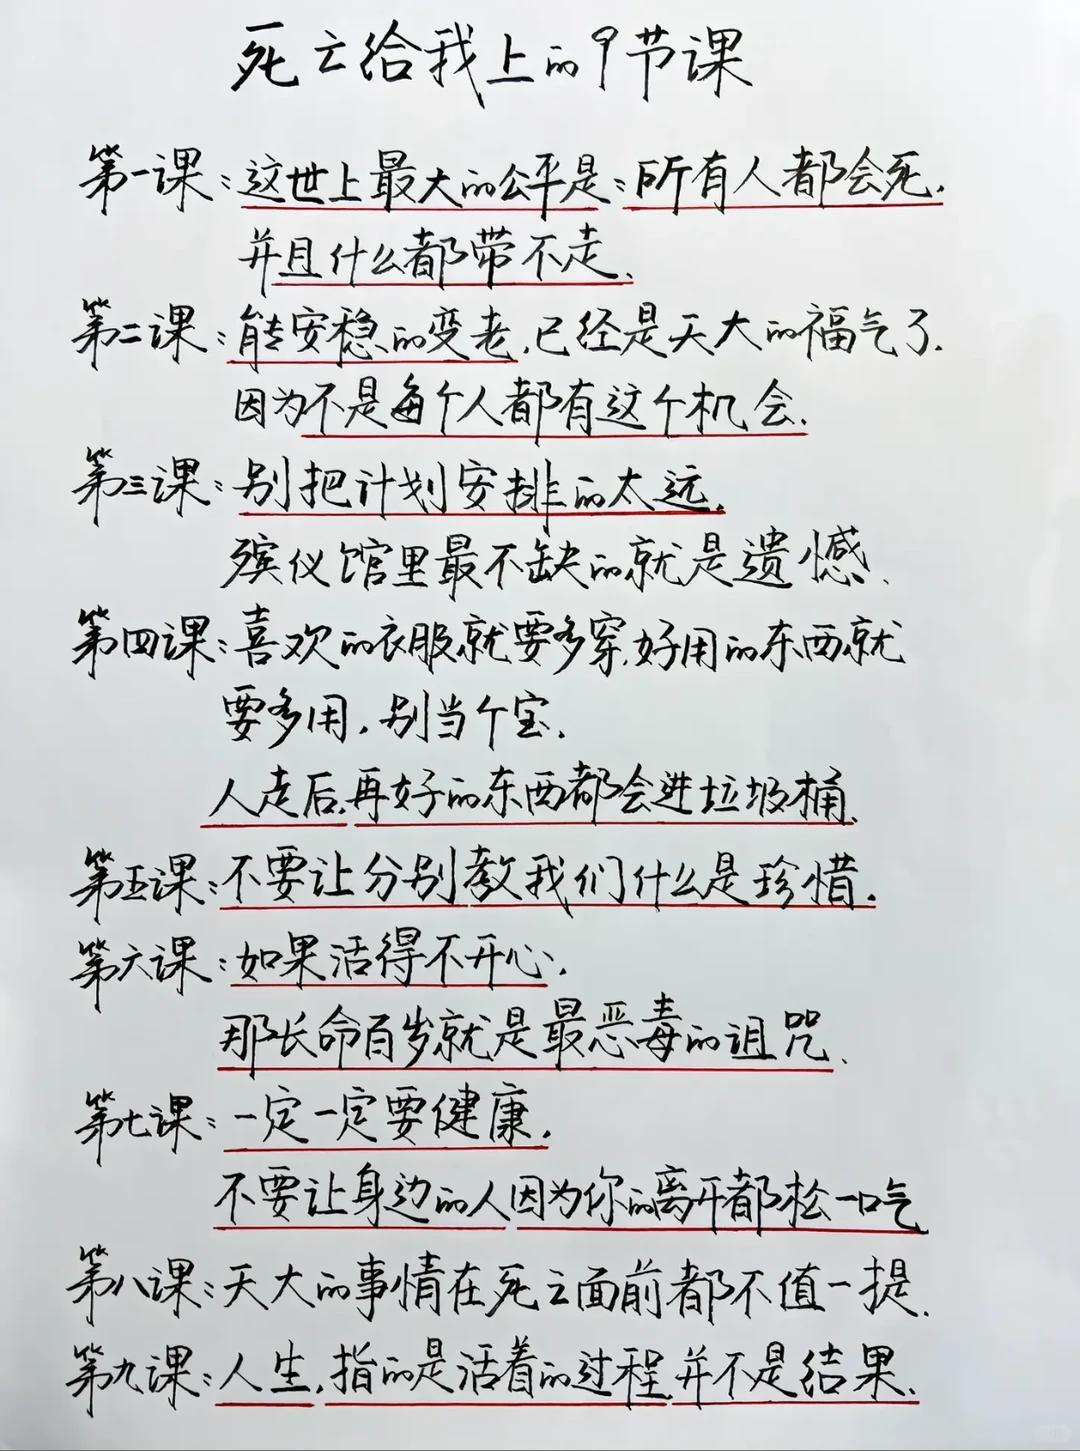 死亡给我上的9节课
第一课:这世上最大的公平是:所有人都会死.
并且什么都带不走.
第二课:能安稳的变老,已经是天大的福气了.
因为不是每个人都有这个机会.
第三课:别把计划安排的太远.
殡仪馆里最不缺的就是遗憾.
第四课:喜欢的衣服就要多穿,好用的东西就
要多用,别当个宝.
人走后,再好的东西都会进垃圾桶.
第五课:不要让分别教我们什么是珍惜.
第六课:如果活得不开心,
那长命百岁就是最恶毒的诅咒.
第七课:一定一定要健康.
不要让身边的人因为你的离开都松一口气
第八课:天大的事情在死亡面前都不值一提.
第九课:人生,指的是活着的过程,并不是结果.